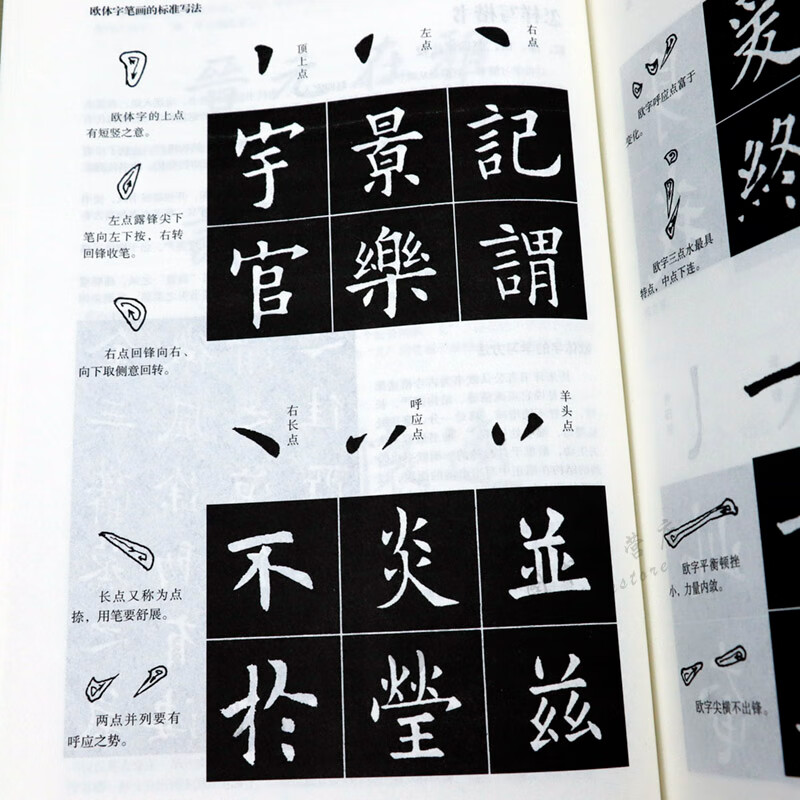 欧体字笔画的标准写法
顶上点
左点
右点
欧体字的上点
有短竖之意。
左点露锋尖下
笔向左下按，右转
回锋收笔。
右点回锋向右、
向下取侧意回转。
宇 景 記
官 樂 謂
右长点
呼应点
羊头点
长点又称为点
捺，用笔要舒展。
两点并列要有
呼应之势。
不 炎 並
於 瑩 兹
欧字呼应点富于
变化。
欧字三点水最具
特点，中点下连。
終
欧字平衡顿挫
小，力量内敛。
欧字尖横不出锋。